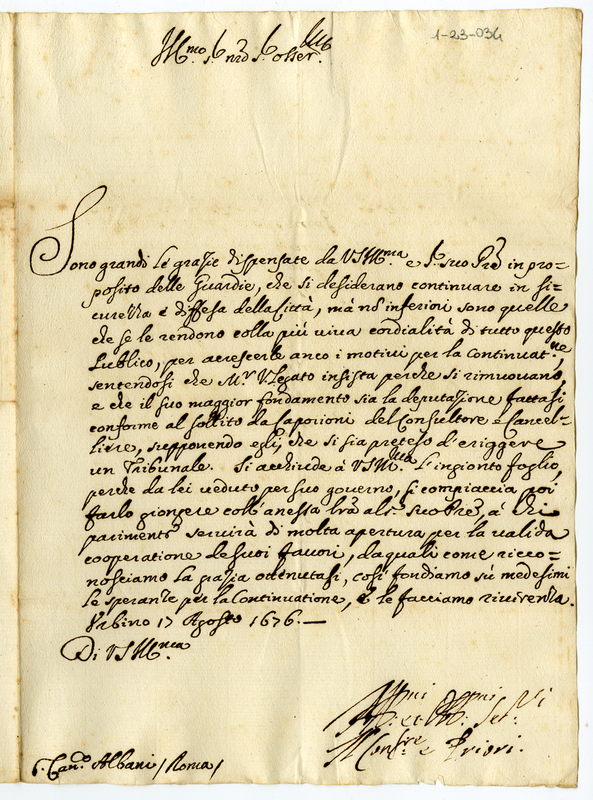 1-23-034
Ill.mo S.r mio S.r osser.
Sono grandi le grazie dispensate da VS Ill.ma e S.r suo Pre in pro=
posito delle Guardie, che si desiderano continuare in si=
curezza e diffesa della Città, mà nõ inferiori sono quelle
che se le rendono colla più viva cordialità di tutto questo
Publico, per accrescerle anco i motivi per la continuat.ne
sentendosi che M.r V.Legato insista perche si rimuovano,
e che il suo maggior fondamento sia la deputazione fattasi
conforme al solito da Caporioni del Consultore e Cancel=
liere, supponendo egli, che si sia preteso d'eriggere
un Tribunale. Si acchiude à VS Ill.ma l'ingionto foglio,
perche da lei veduto per suo governo, si compiaccia poi
farlo giongere coll'anessa lra al S.r suo Pre, à chi
pariment.e servirà di molta apertura per la valida
cooperatione de suoi favori, da quali come ricco=
nosciamo la grazia ottenutasi, così fondiamo sù medesimi
le speranze per la continuatione, e le facciamo riverenza.
Urbino 17 Agosto 1676.—
Di VS Ill.ma
Aff.mi et Obb.mi Ser.ri
Il Conf.re e Priori.
S. Can.co Albani / Roma /